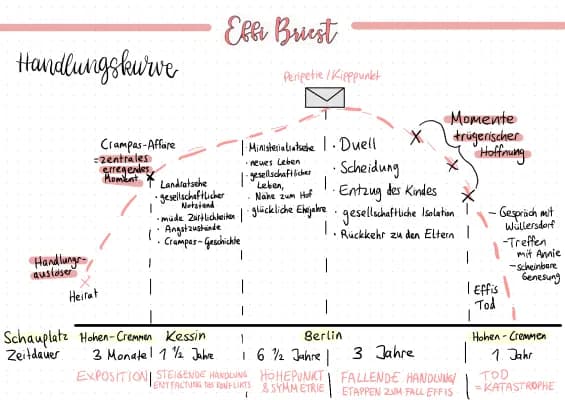 Effi Briest
Handlungskurve
Peripetie/Kipppunkt
Crampas-Affäre
=zentrales
erregendes
Moment
Landratsehe
· gesellschaftlicher
Notstand
· müde Zärtlichkeiten
· Angstzustände
· Crampas-Geschichte
Ministerialratsehe
· neues Leben
· gesellschaftlicher
Leben,
Nähe zum Hof
· glückliche Ehejahre
· Duell
· Scheidung
· Entzug des Kindes
· gesellschaftliche Isolation
· Rückkehr zu den Eltern
Momente
trügerischer
Hoffnung
- Gespräch mit
Wüllersdorf
-Treffen
mit Annie
-scheinbare
Genesung
Handlungs-
auslöser
Heirat
Effis
Tod
Schauplatz Hohen-Cremmen Kessin Berlin Hohen-Cremmen
Zeitdauer 3 Monate 1 1/2 Jahre 6 1/2 Jahre 3 Jahre 1 Jahr
EXPOSITION
STEIGENDE HANDLUNG
ENTFALTUNG DES KONFLIKTS
HÖHEPUNKT
& SYMMETRIE
FALLENDE HANDLUNG/
ETAPPEN ZUM FALL EFFIS
TOD
=KATASTROPHE